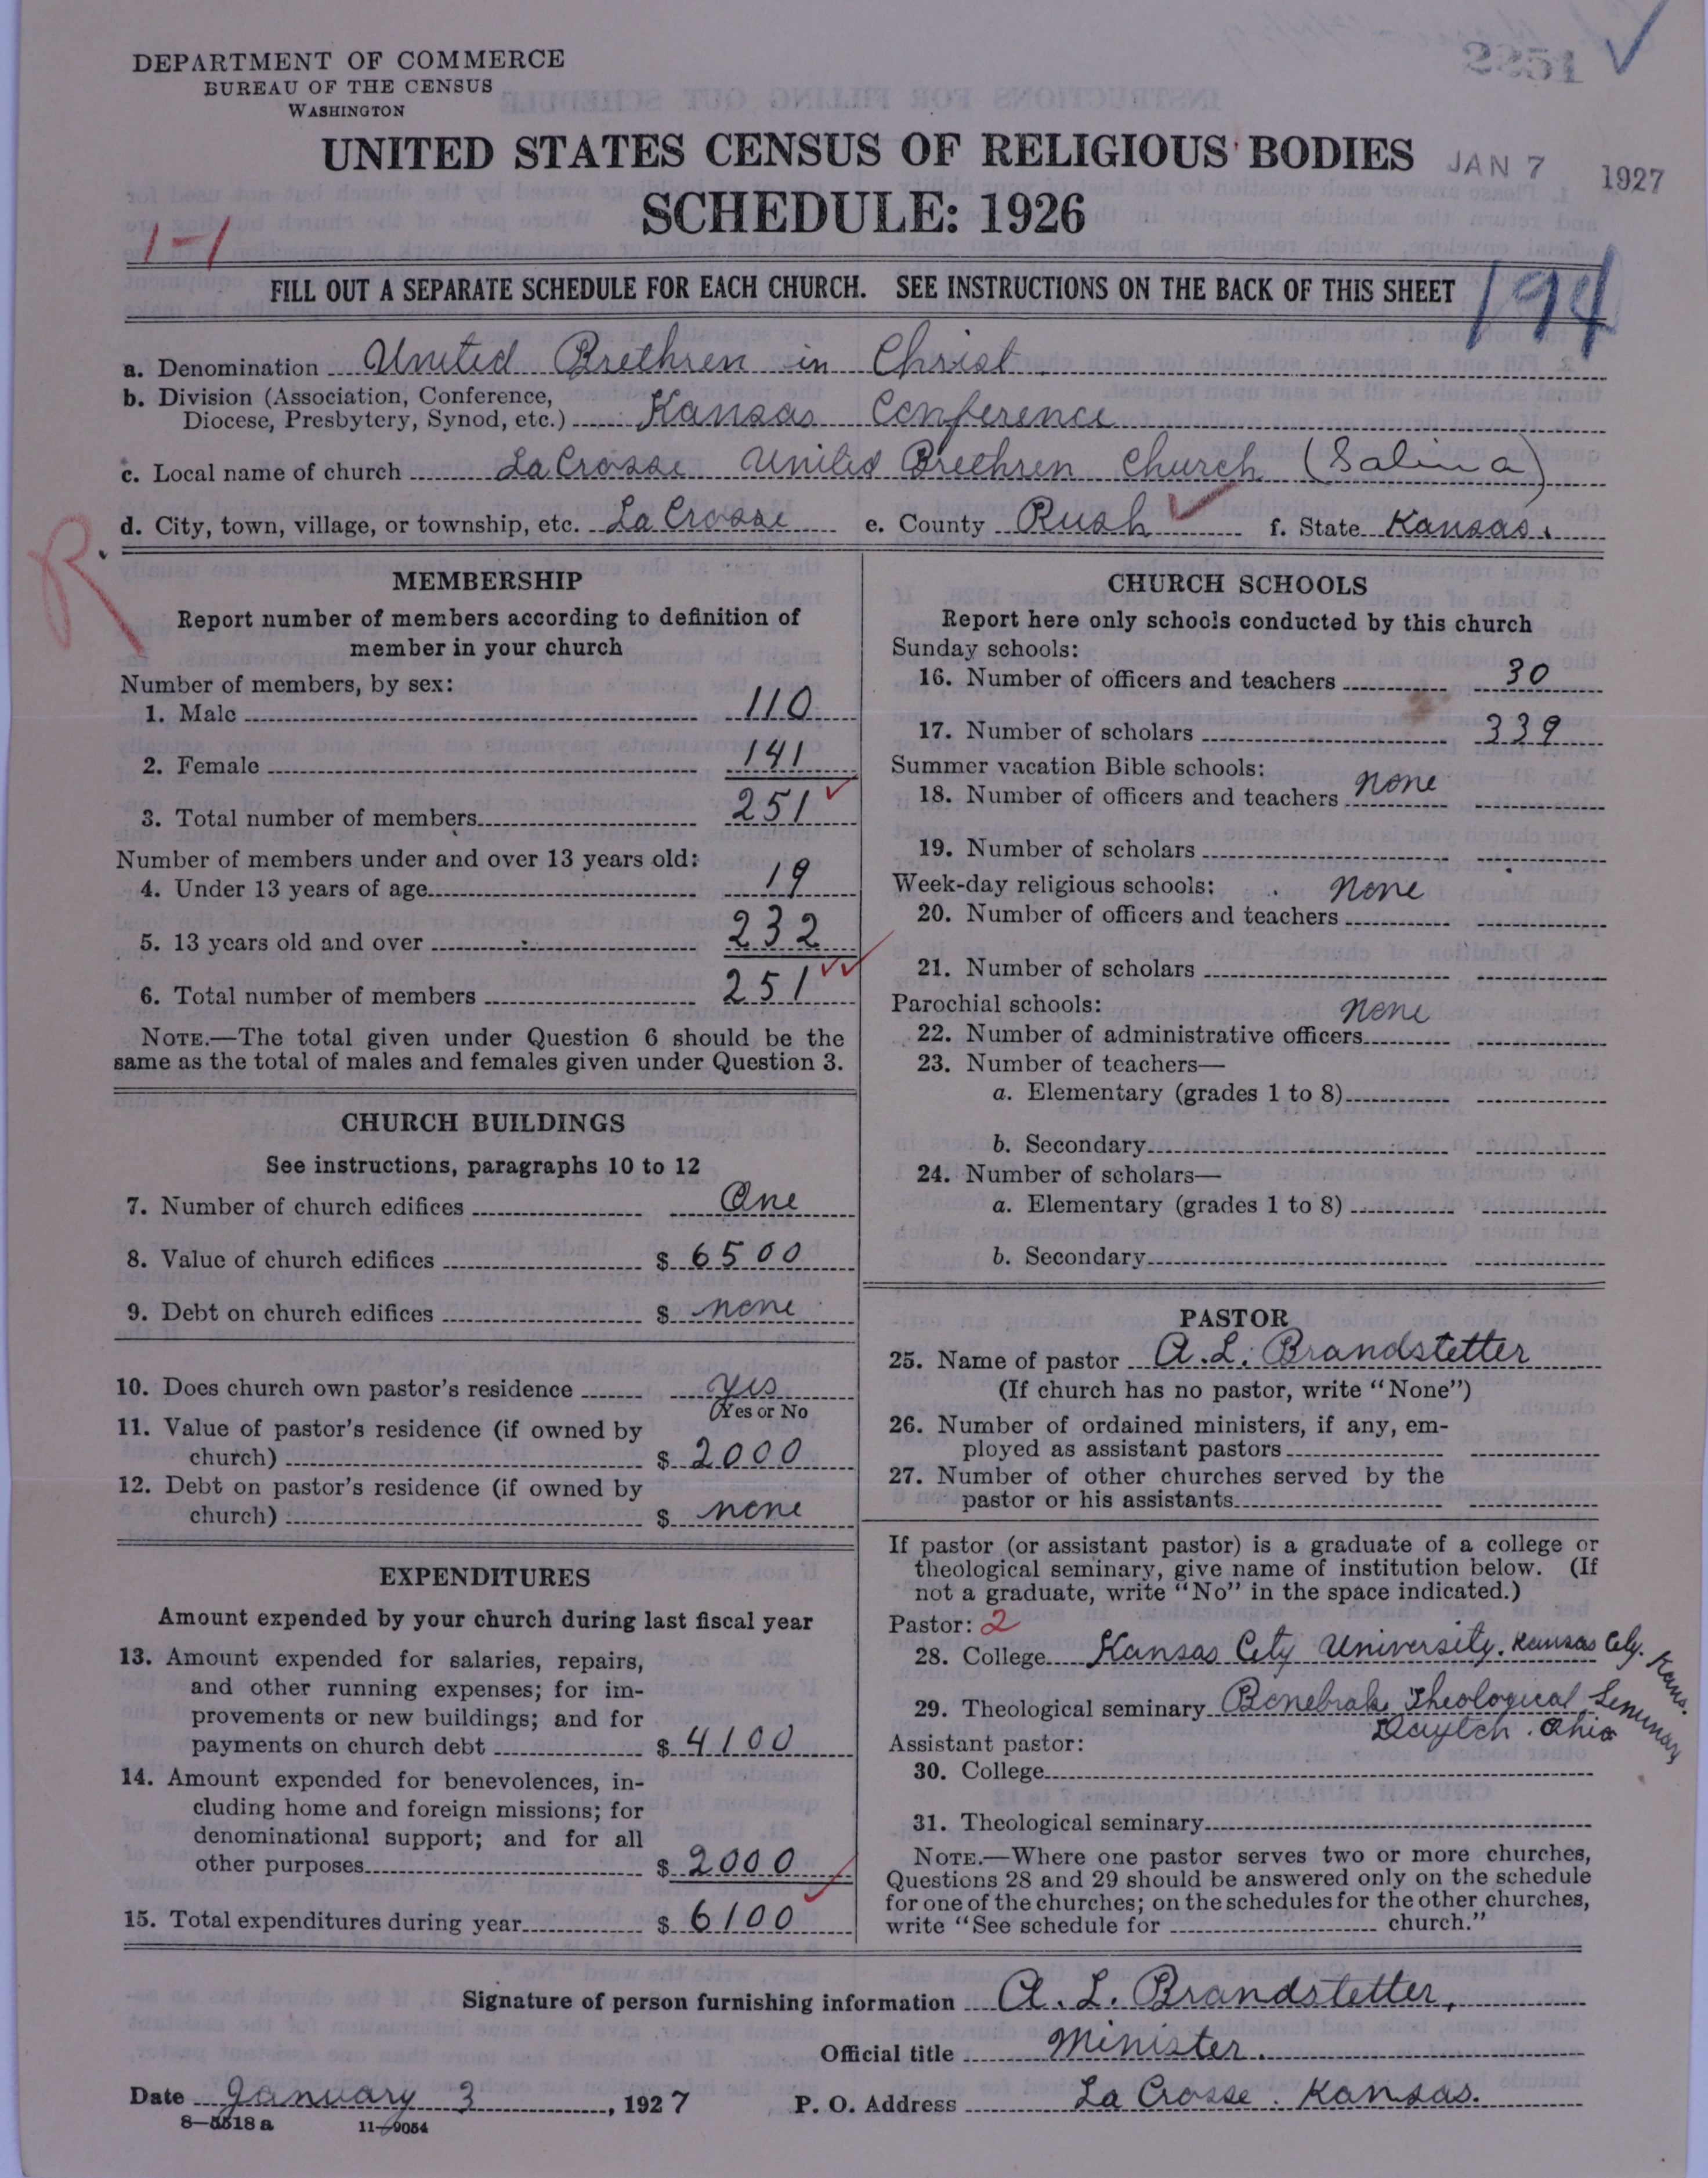 DEPARTMENT OF COMMERCE
BUREAU OF THE CENSUS
WASHINGTON
2251
UNITED STATES CENSUS OF RELIGIOUS BODIES
JAN 7 1927
SCHEDULE: 1926
1-1
FILL OUT A SEPARATE SCHEDULE FOR EACH CHURCH. SEE INSTRUCTIONS ON THE BACK OF THIS SHEET
194
a. Denomination United Brethren in Christ
b. Division (Association, Conference,
Diocese, Presbytery, Synod, etc.) Kansas Conference
c. Local name of church La Crosse United Brethren Church (Salina)
d. City, town, village, or township, etc. La Crosse e. County Rush f. State Kansas.
R
MEMBERSHIP
Report number of members according to definition of
member in your church
Number of members, by sex:
1. Male 110
2. Female 141
3. Total number of members 251
Number of members under and over 13 years old:
4. Under 13 years of age 19
5. 13 years old and over 232
6. Total number of members 251
NOTE.—The total given under Question 6 should be the
same as the total of males and females given under Question 3.
CHURCH BUILDINGS
See instructions, paragraphs 10 to 12
7. Number of church edifices One
8. Value of church edifices $ 6500
9. Debt on church edifices $ none
10. Does church own pastor's residence yes
(Yes or No
11. Value of pastor's residence (if owned by
church) $ 2000
12. Debt on pastor's residence (if owned by
church) $ none
EXPENDITURES
Amount expended by your church during last fiscal year
13. Amount expended for salaries, repairs,
and other running expenses; for im-
provements or new buildings; and for
payments on church debt $ 4100
14. Amount expended for benevolences, in-
cluding home and foreign missions; for
denominational support; and for all
other purposes $ 2000
15. Total expenditures during year $ 6100
CHURCH SCHOOLS
Report here only schools conducted by this church
Sunday schools:
16. Number of officers and teachers 30
17. Number of scholars 339
Summer vacation Bible schools:
18. Number of officers and teachers none
19. Number of scholars
Week-day religious schools: none
20. Number of officers and teachers
21. Number of scholars
Parochial schools: none
22. Number of administrative officers
23. Number of teachers—
a. Elementary (grades 1 to 8)
b. Secondary
24. Number of scholars—
a. Elementary (grades 1 to 8)
b. Secondary
PASTOR
25. Name of pastor A. L. Brandstetter
(If church has no pastor, write "None")
26. Number of ordained ministers, if any, em-
ployed as assistant pastors
27. Number of other churches served by the
pastor or his assistants
If pastor (or assistant pastor) is a graduate of a college or
theological seminary, give name of institution below. (If
not a graduate, write "No" in the space indicated.)
Pastor: 2
28. College Kansas City University. Kansas City. Kans.
29. Theological seminary Bonebrake Theological Seminary
Dayton. Ohio
Assistant pastor:
30. College
31. Theological seminary
NOTE.—Where one pastor serves two or more churches,
Questions 28 and 29 should be answered only on the schedule
for one of the churches; on the schedules for the other churches,
write "See schedule for church."
Signature of person furnishing information A. L. Brandstetter,
Official title Minister.
Date January 3, 1927 P. O. Address La Crosse. Kansas.
8—5518 a 11—9054